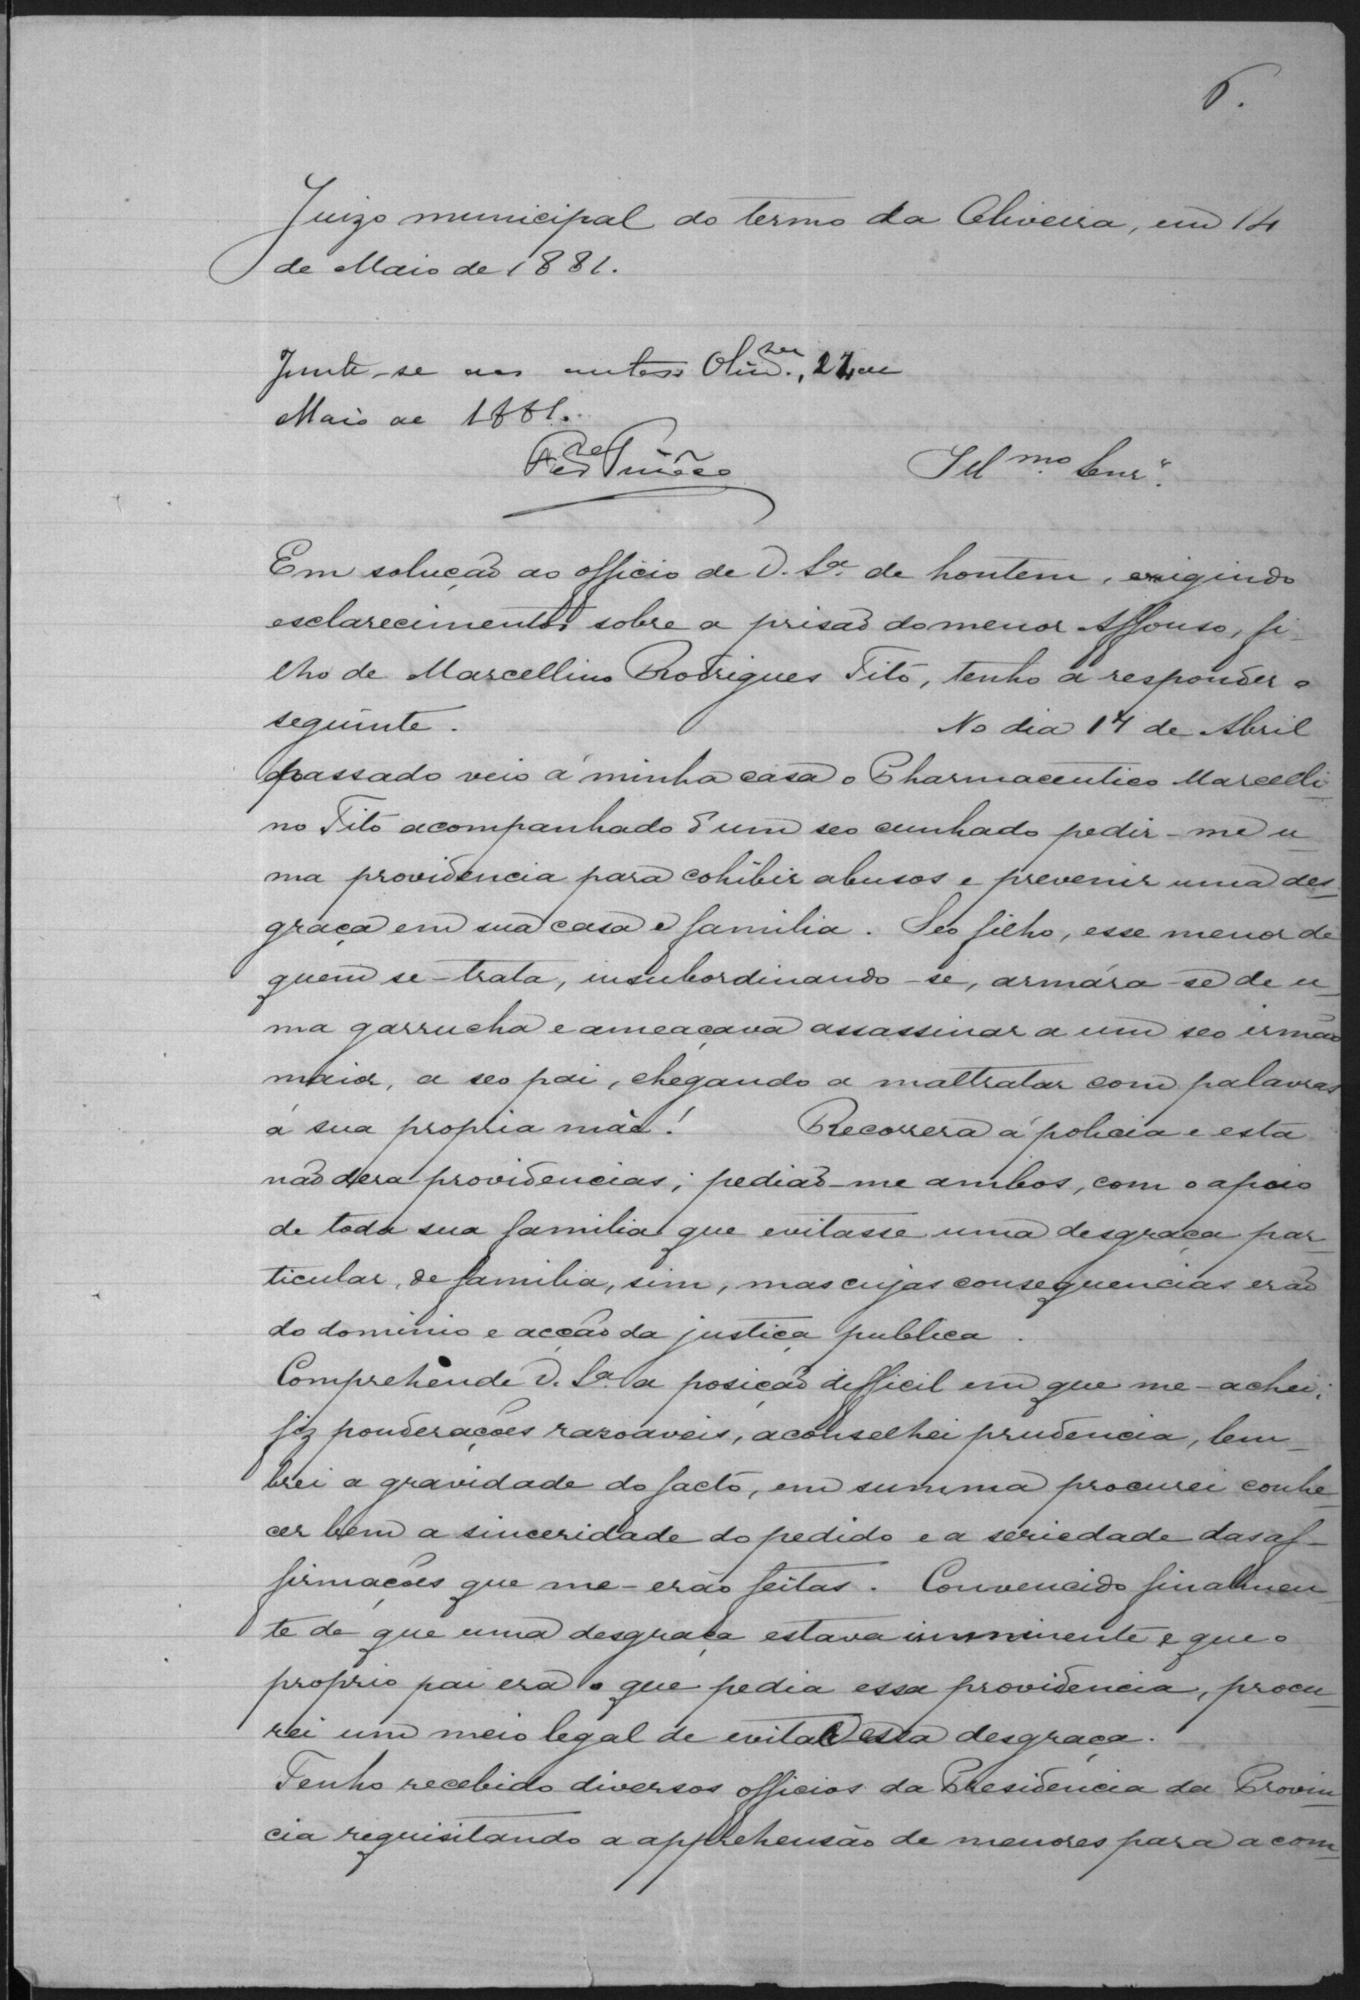 6.
Juizo municipal do termo da Oliveira, em 14
de Maio de 1881.
Junte-se aos autos Olivra., 27 de
Maio de 1881.
Illmo. Senr.
Em solução ao officio de V. Sa. de hontem, exigindo
esclarecimentos sobre a prisão do menor Affonso, fi-
lho de Marcellino Rodrigues Tito, tenho a responder o
seguinte. No dia 17 de Abril
passado veio á minha casa o Pharmaceutico Marcelli-
no Tito acompanhado d'um seo cunhado pedir-me u-
ma providencia para cohibir abusos e prevenir uma des-
graça em sua casa e familia. Seo filho, esse menor de
quem se-trata, insubordinando-se, armára-se de u-
ma garrucha e ameaçava assassinar a um seo irmão
maior, a seo pai, chegando a maltratar com palavras
á sua propria mãe! Recorrera á policia e esta
não dera providencias; pedião-me ambos, com o apoio
de toda sua familia que evitasse uma desgraça par-
ticular, de familia, sim, mas cujas consequencias erão
do dominio e acção da justiça publica.
Comprehende V. Sa. a posição difficil em que me-achei;
fiz ponderações razoaveis, aconselhei prudencia, lem-
brei a gravidade do facto, em summa procurei conhe-
cer bem a sinceridade do pedido e a seriedade das af-
firmações que me-erão feitas. Convencido finalmen-
te de que uma desgraça estava imminente e que o
proprio pai era o que pedia essa providencia, procu-
rei um meio legal de evitar essa desgraça.
Tenho recebido diversos officios da Presidencia da Provin-
cia requisitando a apprehensão de menores para a com-